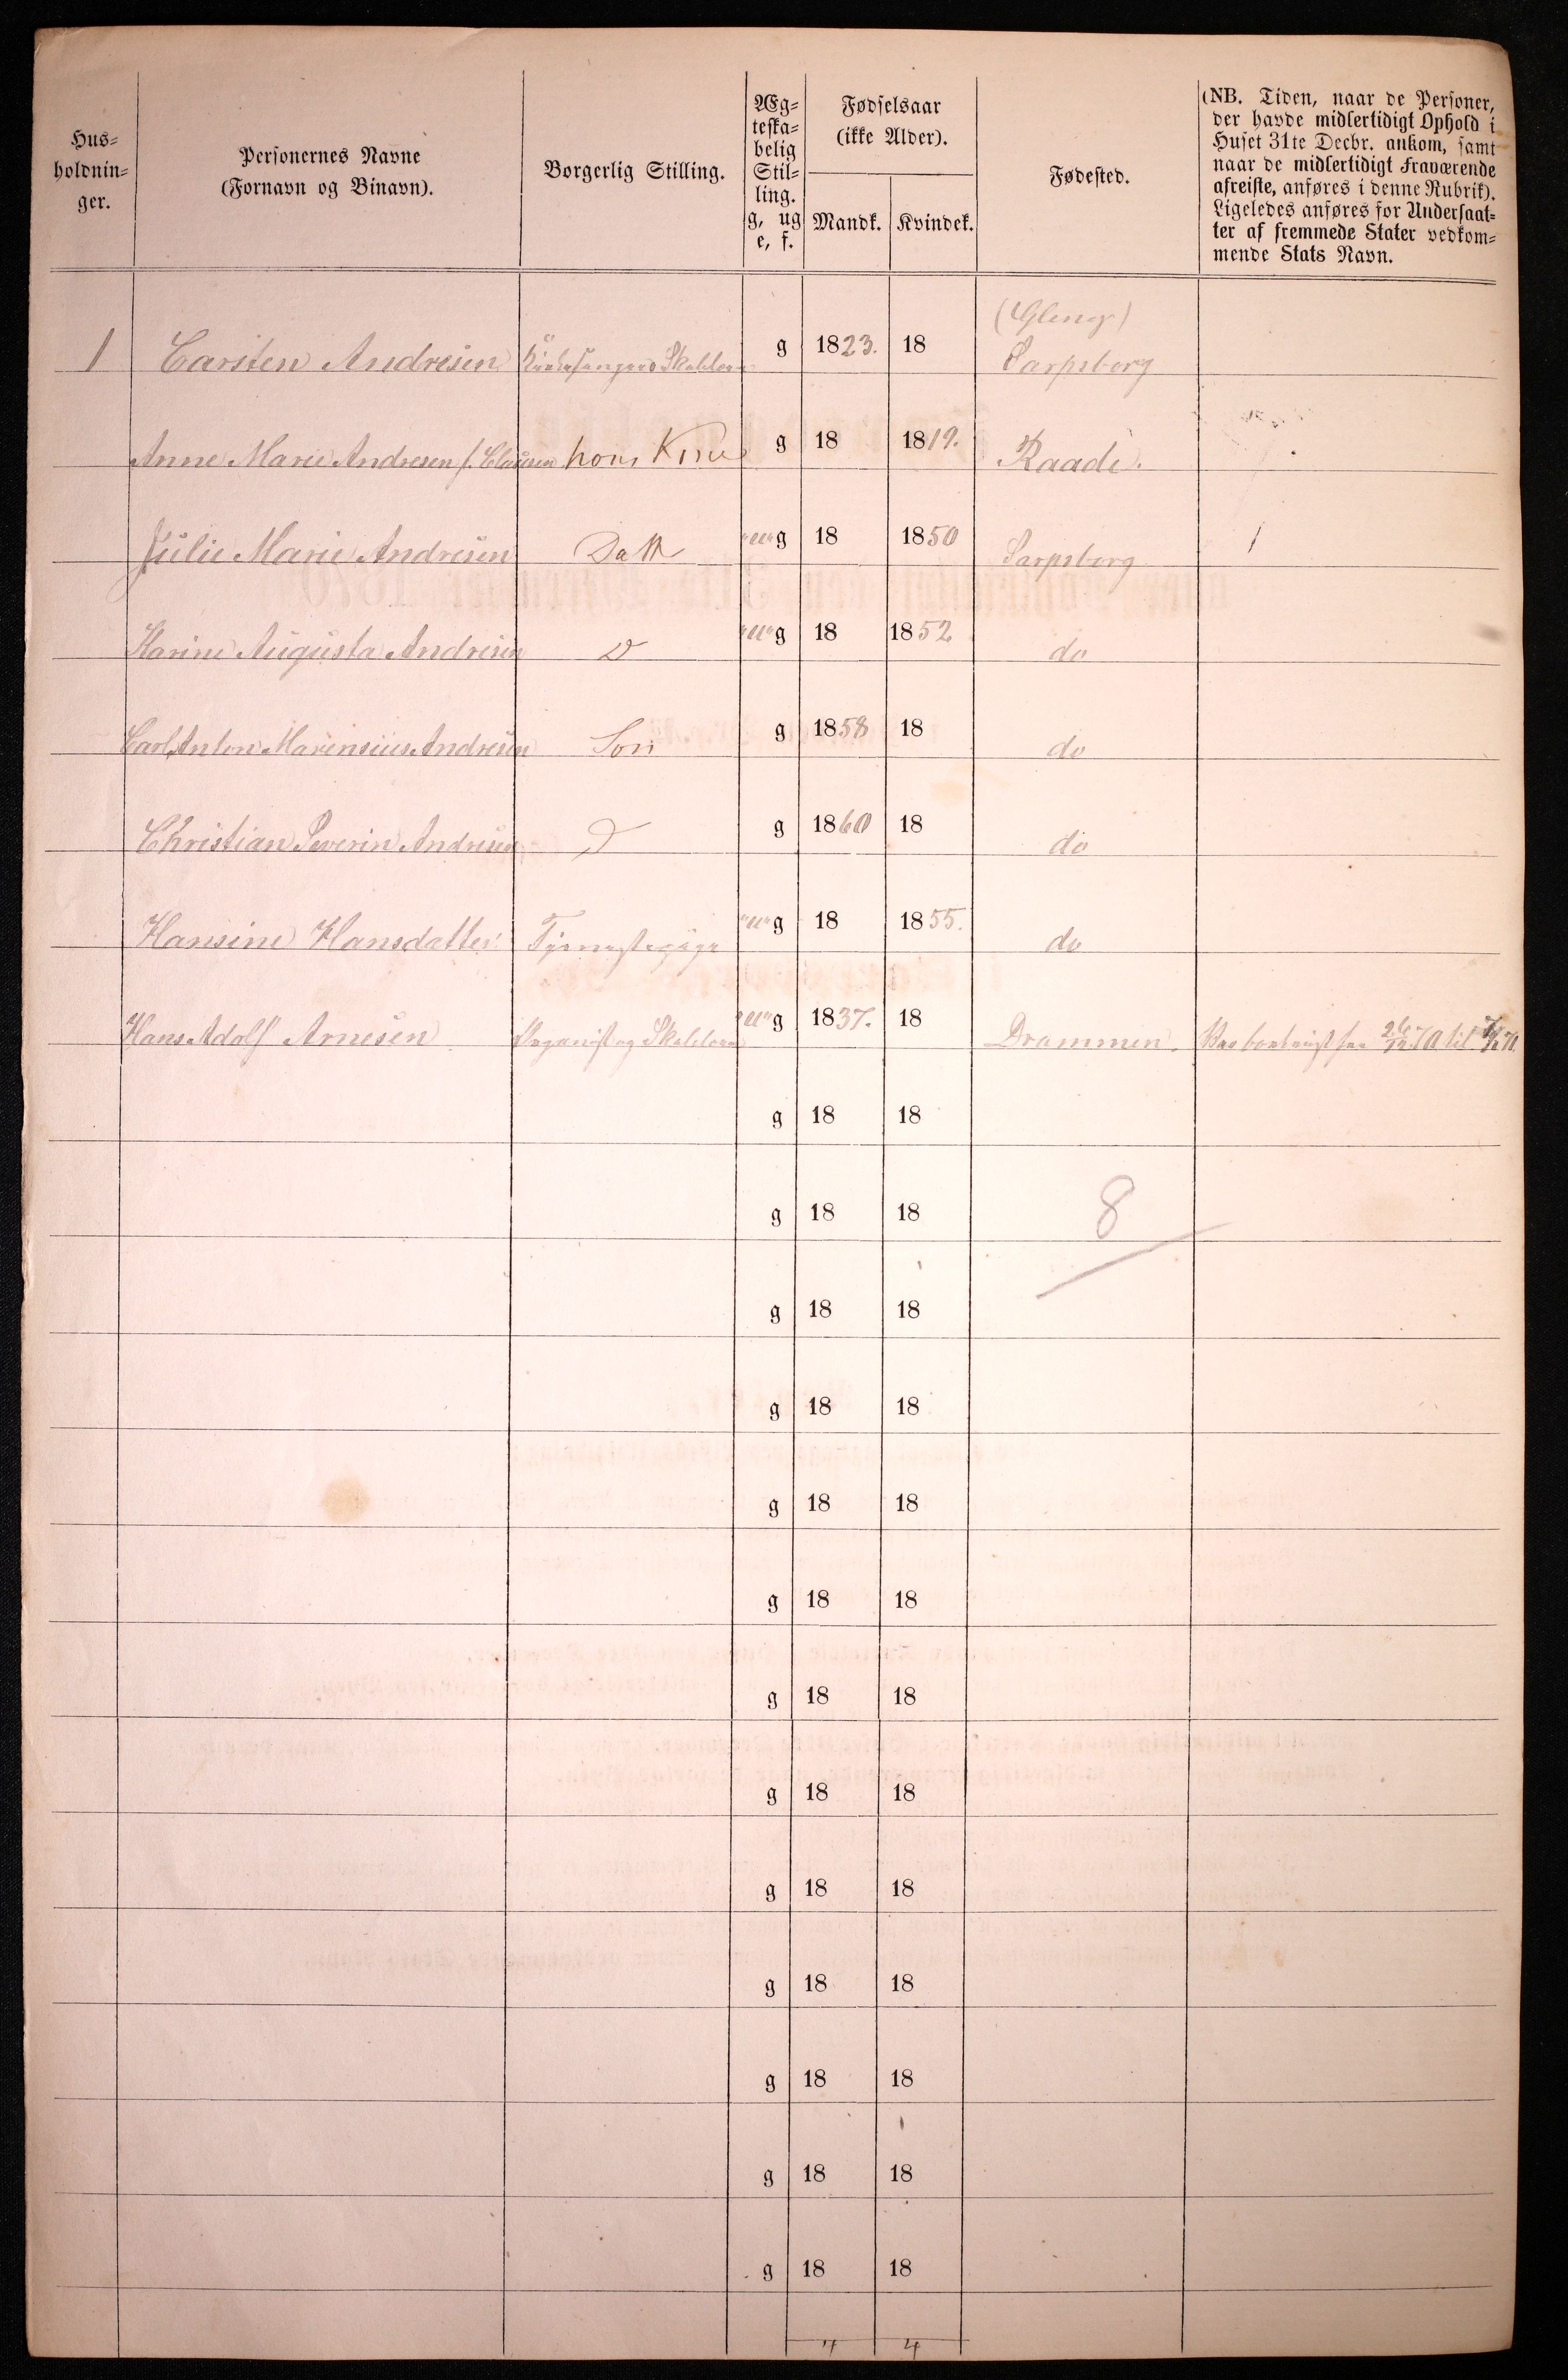 Hus-
holdnin-
ger.
Personernes Navne
(Fornavn og Binavn).
Borgerlig Stilling.
Æg-
teska-
belig
Stil-
ling.
g, ug
e, f.
Fødselsaar
(ikke Alder).
Mandk. Kvindek.
Fødested.
(NB. Tiden, naar de Personer,
der havde midlertidigt Ophold i
Huset 31te Decbr. ankom, samt
naar de midlertidigt fraværende
afreiste, anføres i denne Rubrik).
Ligeledes anføres for Undersaat-
ter af fremmede Stater vedkom-
mende Stats Navn.
(Gleng)
1 Carsten Andresen g 1823. 18 Sarpsborg
Anne Marie Andresen f. Clausen hans Kone g 18 1819. Raade.
Julie Marie Andresen Datt ug 18 1850 Sarpsborg 1
Karine Augusta Andresen D ug 18 1852 do
Carl Anton Marensius Andresen Søn g 1858 18 do
Christian Severin Andresen D g 1860 18 do
Hansine Hansdatter Tjenestepige ug 18 1855. do
Hans Adolf Arnesen Organist og ug 1837. 18 Drammen. 26/12 70 til
g 18 18
g 18 18 8
g 18 18
g 18 18
g 18 18
g 18 18
g 18 18
g 18 18
g 18 18
g 18 18
g 18 18
g 18 18
g 18 18
4 4